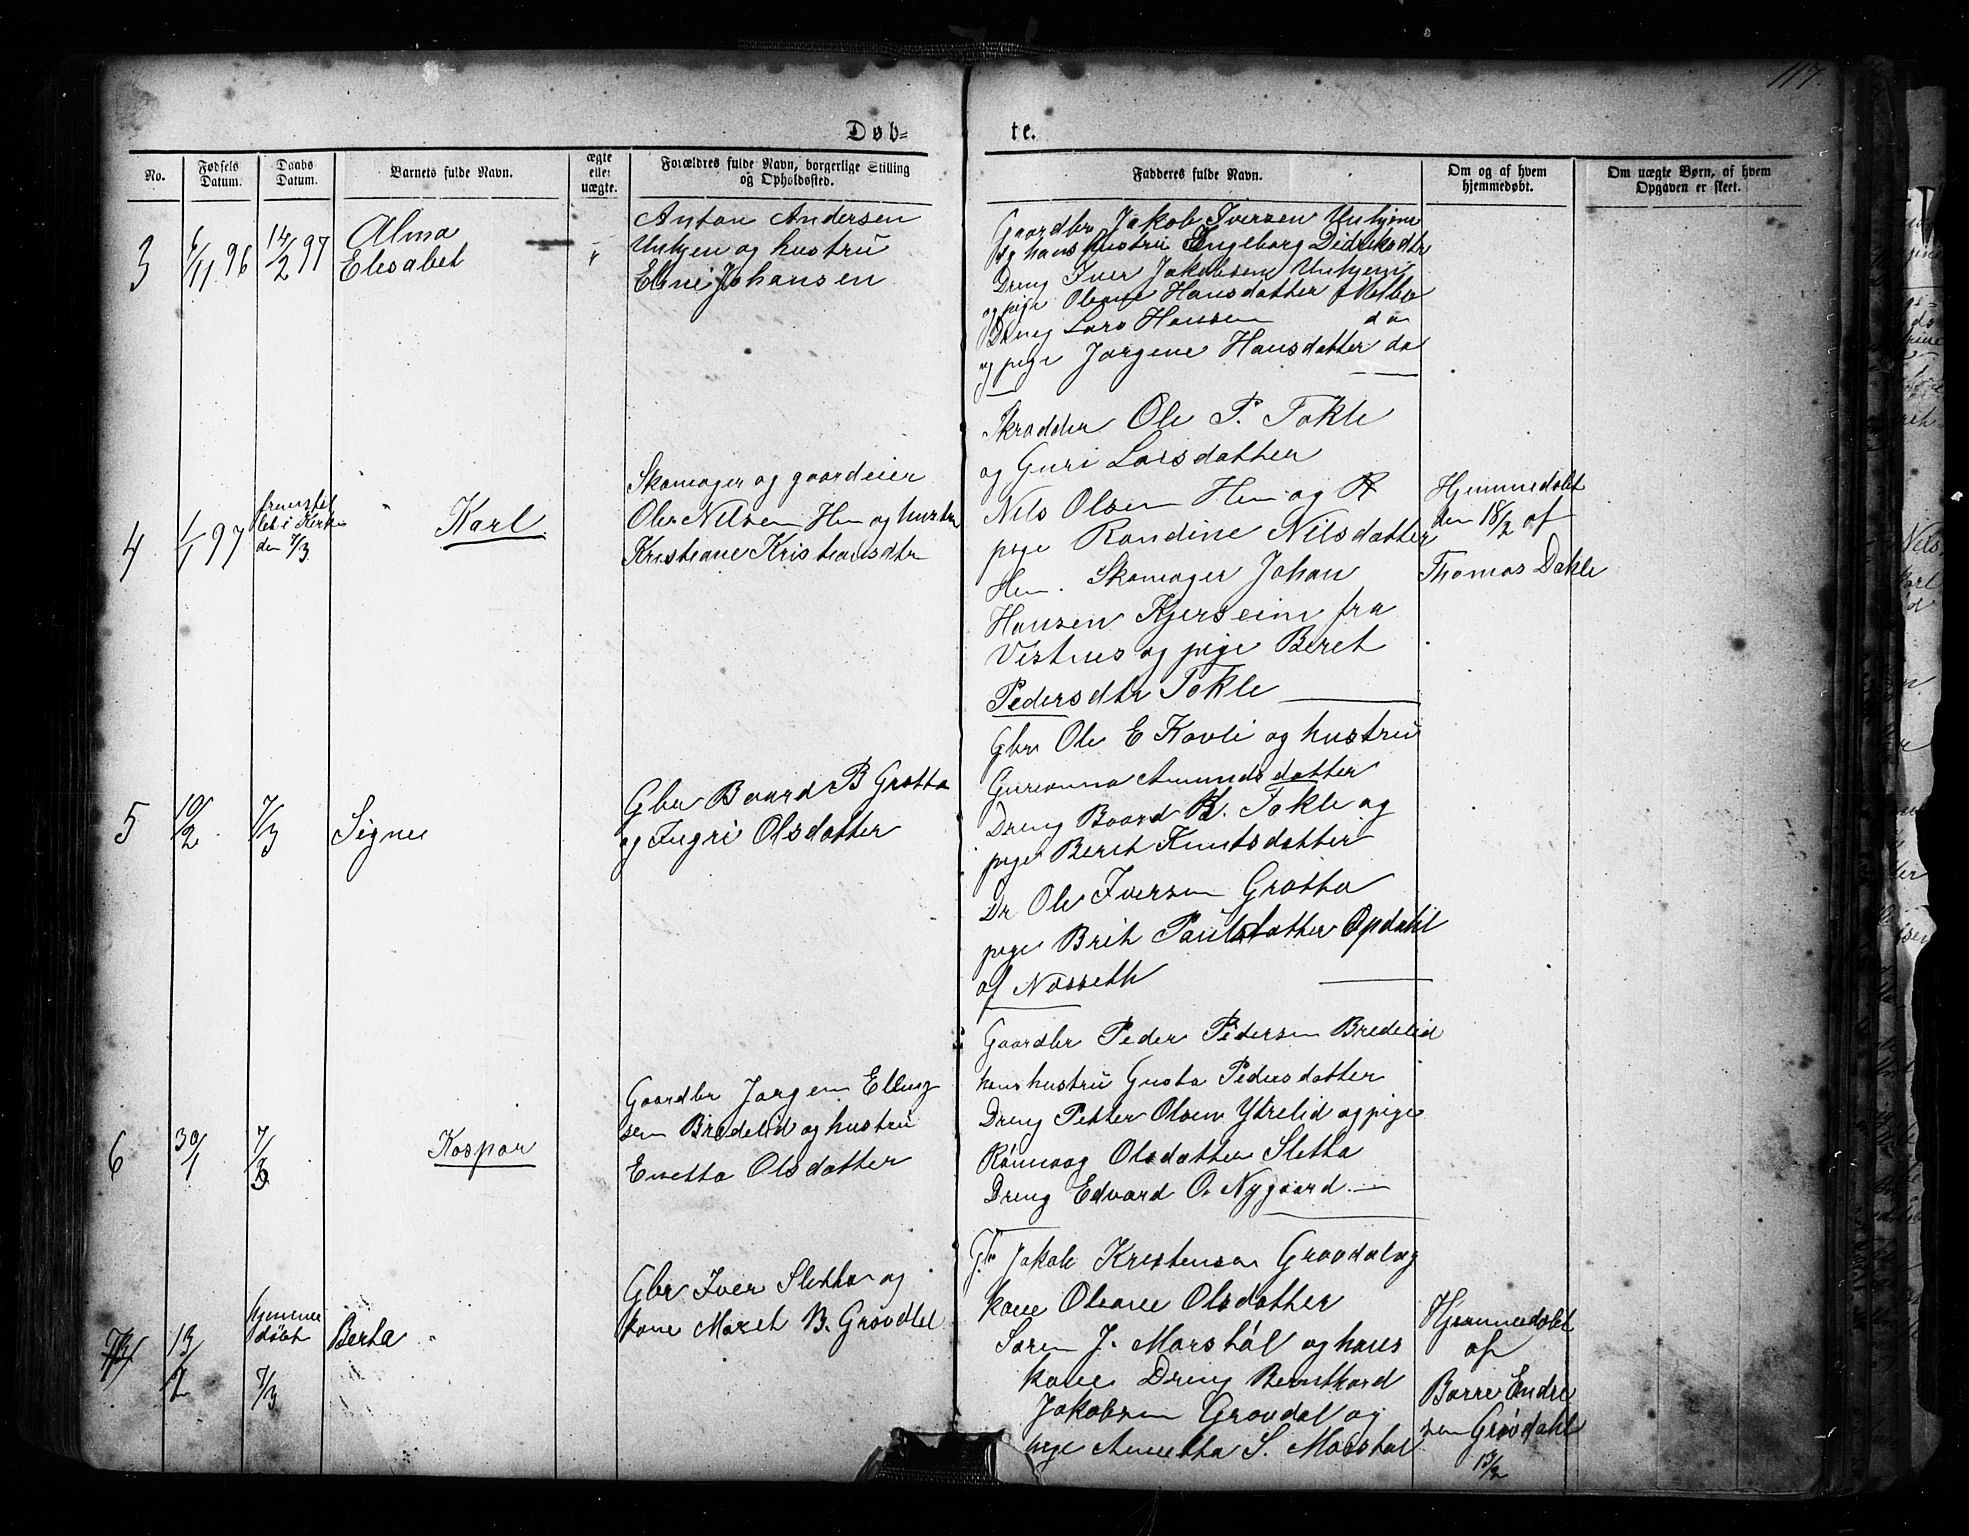 117.
Døb=
te.
No.
Fødsels Datum.
Daabs Datum.
Barnets fulde Navn.
ægte eller uægte.
Forældres fulde Navn, borgerlige Stilling og Opholdssted.
Fadderes fulde Navn.
Om og af hvem hjemmedøbt.
Om uægte Børn, af hvem Opgaven er skeet.
3
6/11 96
14/2 97
Alma
Elesabet
Anton Andersen
Unhjen og hustru
Eline Johansen
Gaardbr Jakob Iversen Unhjem
og hans hustru Engeborg Didriksdtr
Dreng Iver Jakobsen Unhjem
og pige Oleane Hansdatter
Dreng Lars Hansen do
og pige Jørgene Hansdatter do
4
1/1 97
den 7/3
Karl
Skomager og gaardeier
Ole Nilsen Hen og hustru
Kristiane Kristiansdtr
Skrædder Ole P. Tokle
og Guri Larsdatter
Nils Olsen Hen og
pige Randine Nilsdatter
Hen. Skomager Johan
Hansen Kjerseim fra
Vestnes og pige Beret
Pedersdtr Tokle
Hjemmedøbt
den 18/2 af
Thomas Dahle
5
10/2
7/3
Signe
Gbr Baard B Grøtta
og Ingri Olsdatter
Gbr Ole E Kavli og hustru
Gureanna Amundsdatter
Dreng Baard K. Tokle og
pige Berit Knutsdatter
Dr Ole Iversen Grøtta
pige Brit Paulsdatter Opdahl
af Næsseth
6
30/1
7/3
Kaspar
Gaardbr Jørgen Elling
sen Bredelid og hustru
Enetta Olsdatter
Gaardbr Peder Pedersen Bredelid
hans hustru Gusta Pedersdatter
Dreng Petter Olsen Ytrelid og pige
Rønnaug Olsdatter Sletta
Dreng Edvard O. Nygaard
7
13/2
hjemme
døbt
7/3
Berta
Gbr Iver Sletta og
kone Maret B. Grøvdal
Gbr Jakob Kristensen Grøvdal og
kone Oleane Olsdatter
Søren J. Marstøl og hans
kone Dreng Bernthard
Jakobsen Grøvdal og
pige Anetha S. Marstøl
Hjemmedøbt
af
Børre Endre
sen Grøvdahl
13/2